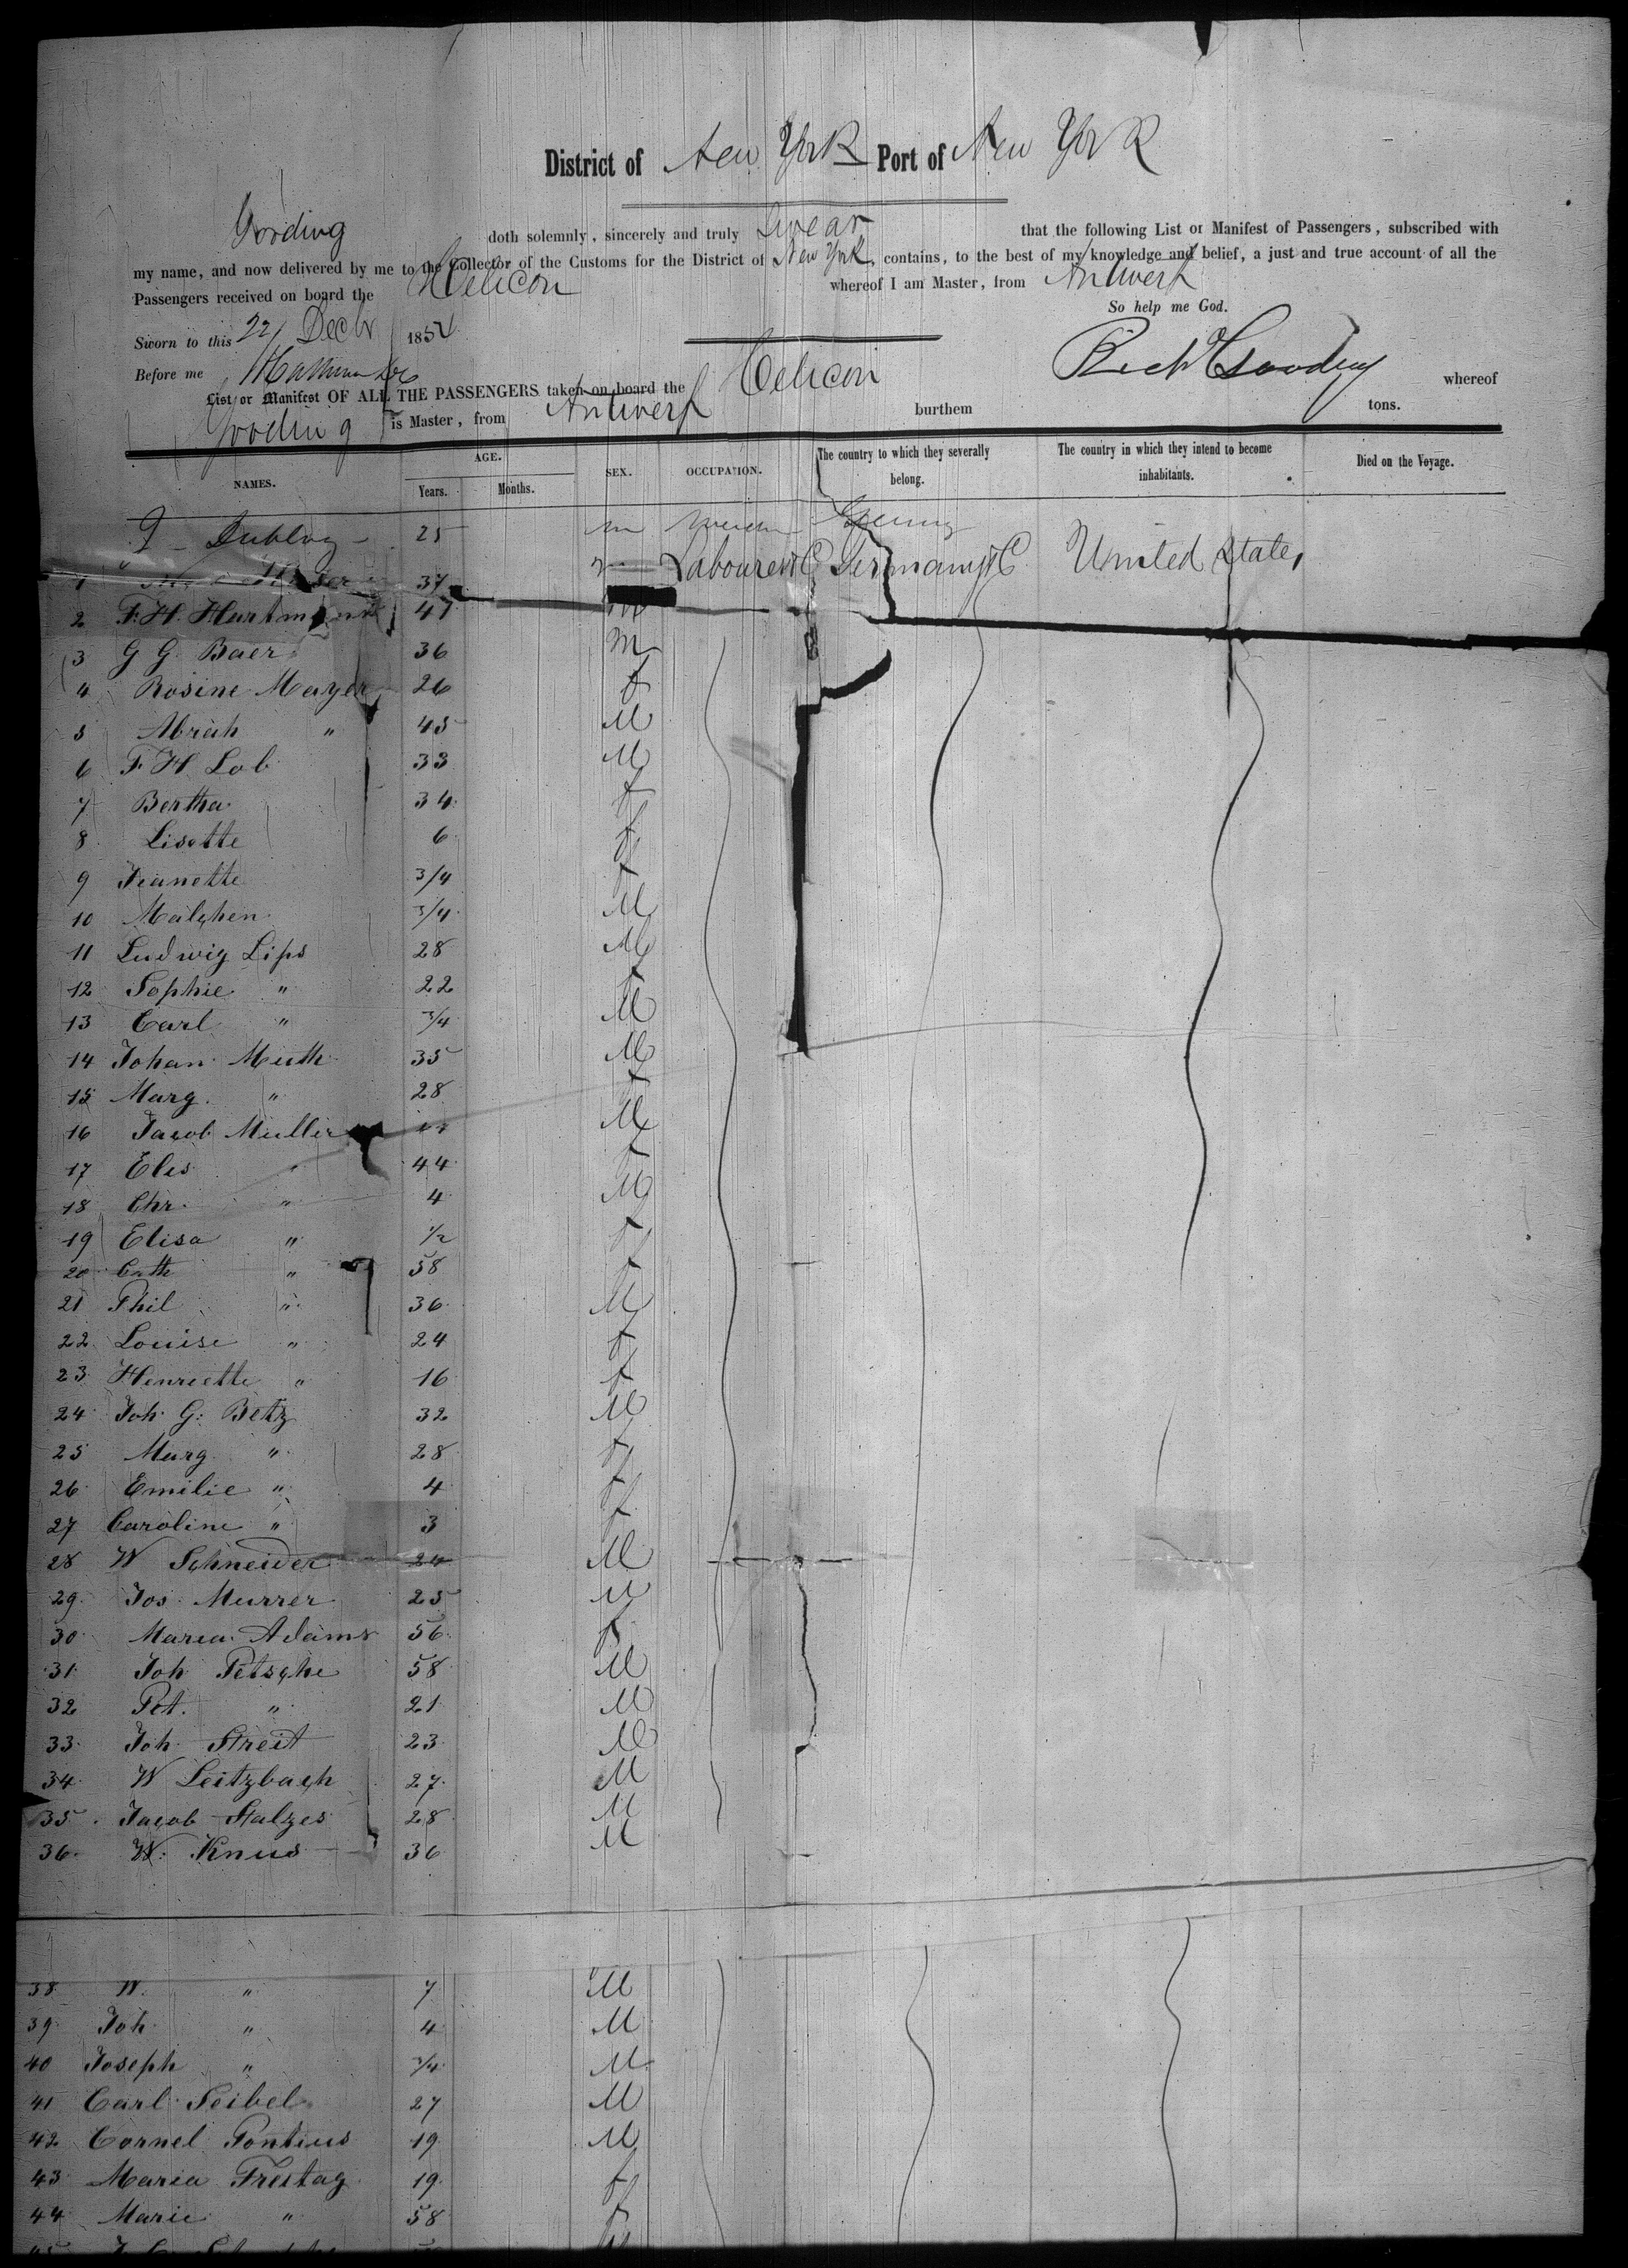 District of New York Port of New York
Gooding doth solemnly, sincerely and truly Swear that the following List or Manifest of Passengers, subscribed with
my name, and now delivered by me to the Collector of the Customs for the District of New York, contains, to the best of my knowledge and belief, a just and true account of all the
Passengers received on board the Helicon whereof I am Master, from Antwerp
So help me God.
Sworn to this 22 Decbr 1854
Before me
List or Manifest OF ALL THE PASSENGERS taken on board the Helicon whereof
Gooding is Master, from Antwerp burthem tons.
NAMES. AGE. Years. Months. SEX. OCCUPATION. The country to which they severally belong. The country in which they intend to become inhabitants. Died on the Voyage.
25 m
1 37 Labourer &C Germany &C United States
2 F. H. Hartmann 47 m
3 G G Baer 36 m
4 Rosine Mayer 26 f
5 Abrah " 45 M
6 F H Lob 33 M
7 Bertha 34 f
8 Lisette 6 f
9 Jeanette 3/4 f
10 Malchen 3/4 M
11 Ludwig Lips 28 M
12 Sophie " 22 f
13 Carl " 3/4 M
14 Johan Muth 35 M
15 Marg. " 28 f
16 Jacob Muller M
17 Elis " 44 f
18 Chr. " 4 M
19 Elisa " 1/2 f
20 Cath " 58 f
21 Phil " 36 M
22 Louise " 24 f
23 Henriette " 16 f
24 Joh. G. Betz 32 M
25 Marg " 28 f
26 Emilie " 4 f
27 Caroline " 3 f
28 W Schneider 24 M
29 Jos. Murrer 25 M
30 Maria Adams 56 f
31 Joh Petsche 58 M
32 Pet. " 21 M
33 Joh Streit 23 M
34 W Leitzbach 27 M
35 Jacob Stalzes 28 M
36 W. Knus 36 M
38 W. " 7 M
39 Joh " 4 M
40 Joseph " 3/4 M
41 Carl Seibel 27 M
42 Cornel Pontius 19 M
43 Maria Freitag 19 f
44 Marie " 58 f